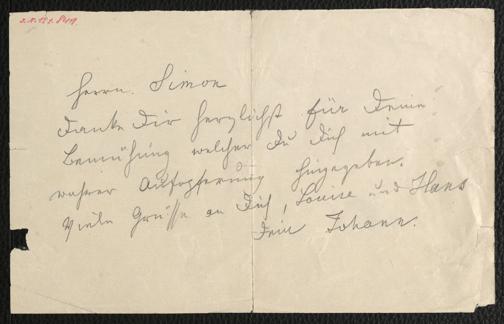 Herrn. Simon
Danke Dir herzlichst für Deine
Bemühung welcher Du Dich mit
wahrer Aufopferung hingegeben.
Viele Grüsse an Dich, Louise und Hans
Dein Johann.